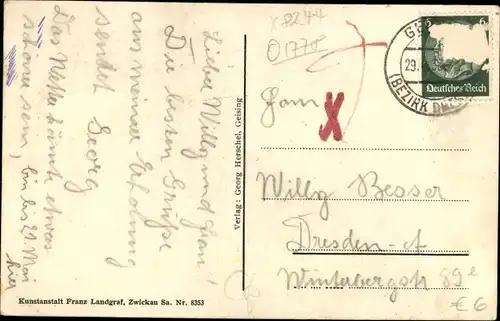 Lieber Willy und Frau!
Die besten Grüße
aus meiner Erholung
sendet Georg
Das Wetter könnte etwas
schöner sein, bin bis 21 Mai
hier
Kunstanstalt Franz Landgraf, Zwickau Sa. Nr. 8353
Verlag: Georg Herschel, Geising
01778
X
6 6
Deutsches Reich
29.
(BEZIRK
Willy Besser
Dresden-A
Winterbergstr 89e
€6